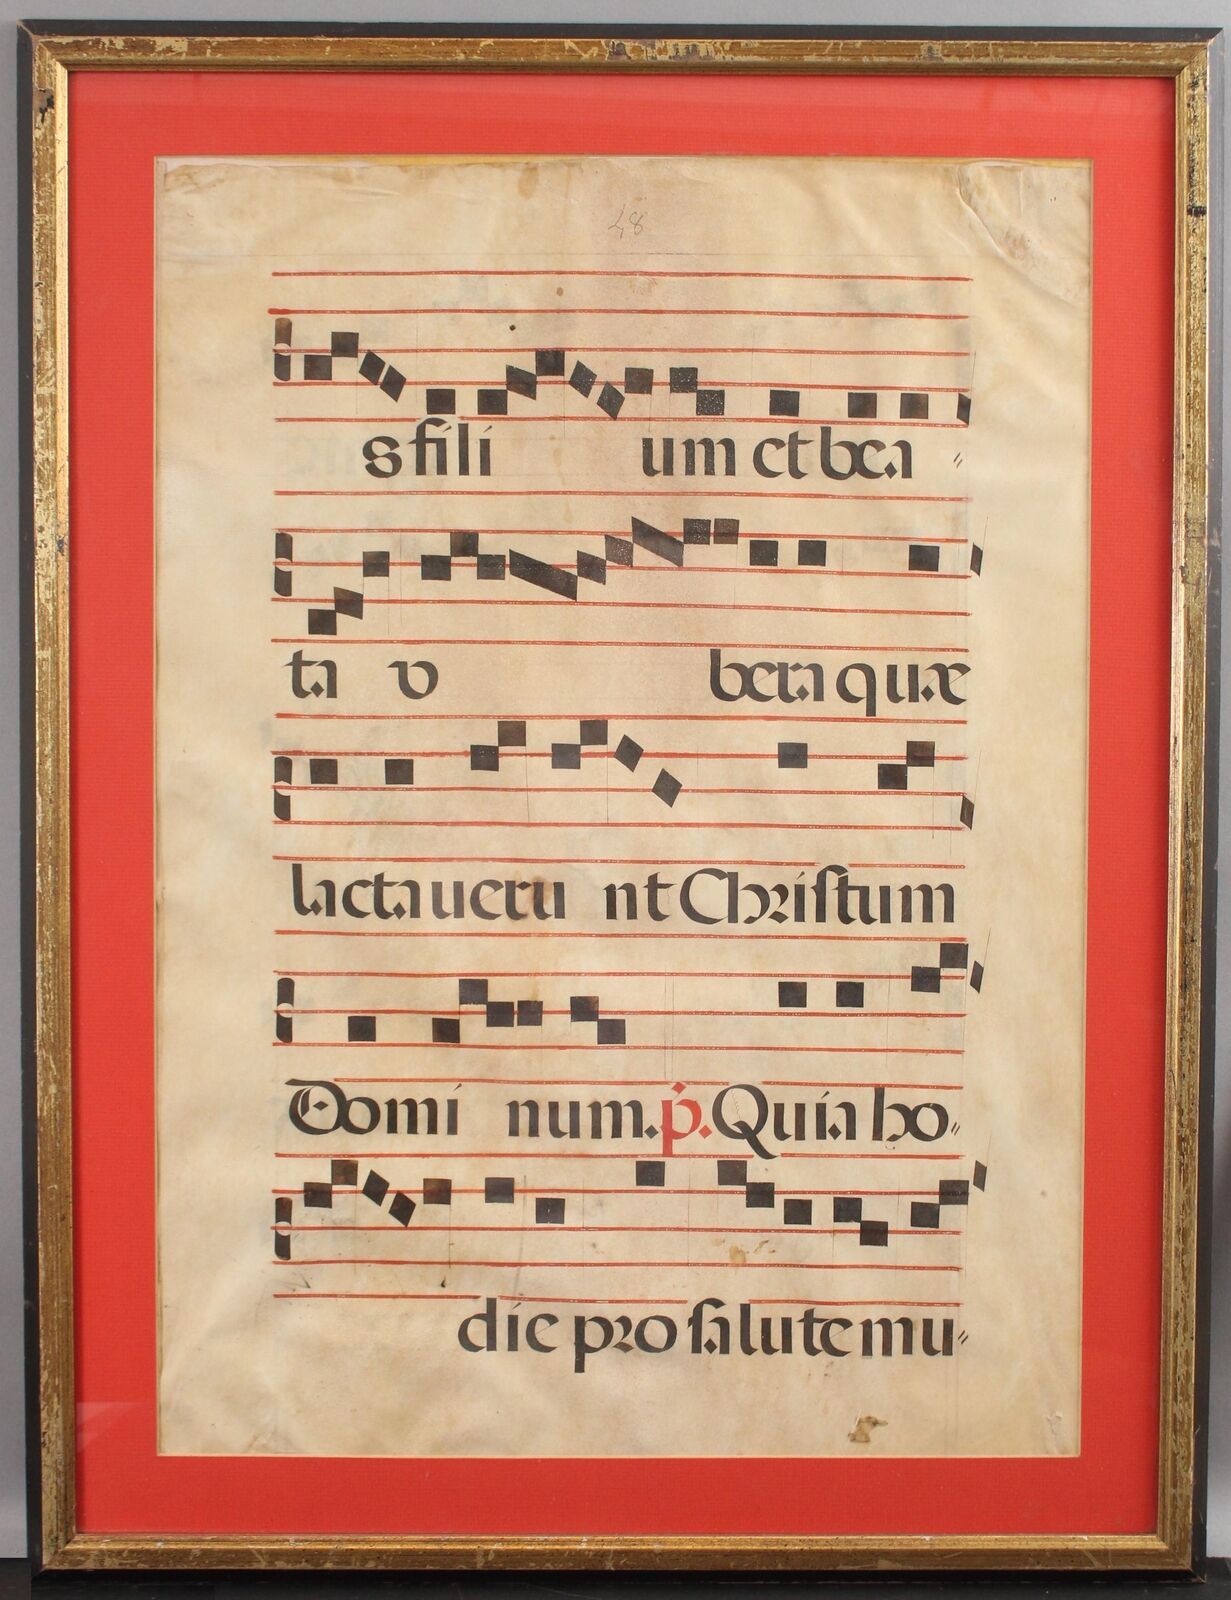 48
s fili um et bea〃
ta v bera quæ
lactaueru nt Christum
Domi num. p. Quia ho〃
die pro salute mu〃